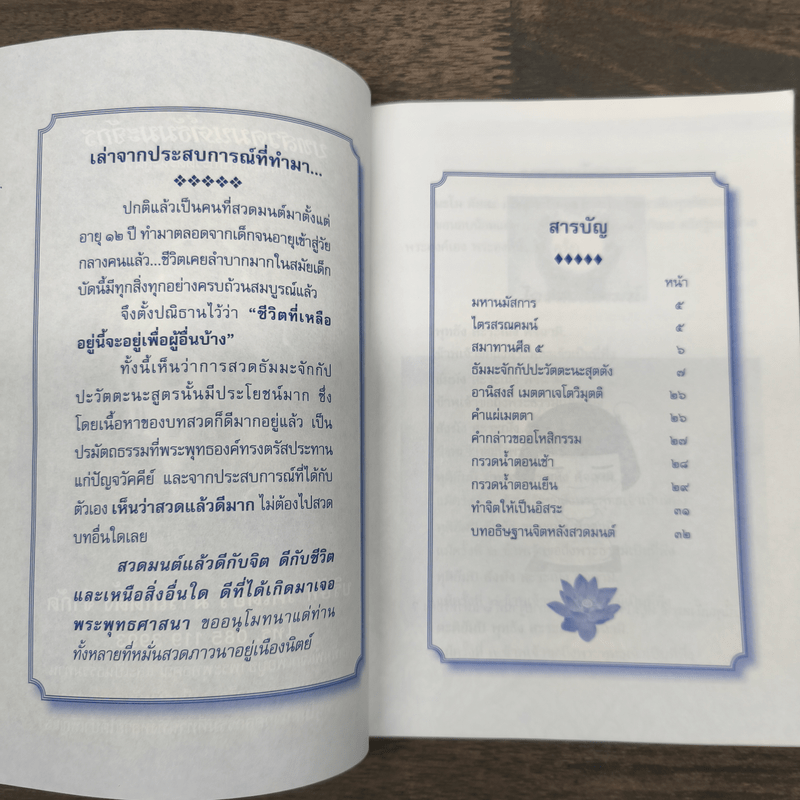 เล่าจากประสบการณ์ที่ทำมา...
ปกติแล้วเป็นคนที่สวดมนต์มาตั้งแต่
อายุ ๑๒ ปี ทำมาตลอดจากเด็กจนอายุเข้าสู่วัย
กลางคนแล้ว...ชีวิตเคยลำบากมากในสมัยเด็ก
บัดนี้มีทุกสิ่งทุกอย่างครบถ้วนสมบูรณ์แล้ว
จึงตั้งปณิธานไว้ว่า “ชีวิตที่เหลือ
อยู่นี้จะอยู่เพื่อผู้อื่นบ้าง”
ทั้งนี้เห็นว่าการสวดธัมมะจักกัป
ปะวัตตะนะสูตรนั้นมีประโยชน์มาก ซึ่ง
โดยเนื้อหาของบทสวดก็ดีมากอยู่แล้ว เป็น
ปรมัตถธรรมที่พระพุทธองค์ทรงตรัสประทาน
แก่ปัญจวัคคีย์ และจากประสบการณ์ที่ได้กับ
ตัวเอง เห็นว่าสวดแล้วดีมาก ไม่ต้องไปสวด
บทอื่นใดเลย
สวดมนต์แล้วดีกับจิต ดีกับชีวิต
และเหนือสิ่งอื่นใด ดีที่ได้เกิดมาเจอ
พระพุทธศาสนา ขออนุโมทนาแด่ท่าน
ทั้งหลายที่หมั่นสวดภาวนาอยู่เนืองนิตย์
สารบัญ
หน้า
มหานมัสการ ๕
ไตรสรณคมน์ ๕
สมาทานศีล ๕ ๖
ธัมมะจักกัปปะวัตตะนะสุตตัง ๗
อานิสงส์ เมตตาเจโตวิมุตติ ๒๖
คำแผ่เมตตา ๒๖
คำกล่าวขออโหสิกรรม ๒๗
กรวดน้ำตอนเช้า ๒๘
กรวดน้ำตอนเย็น ๒๙
ทำจิตให้เป็นอิสระ ๓๑
บทอธิษฐานจิตหลังสวดมนต์ ๓๒